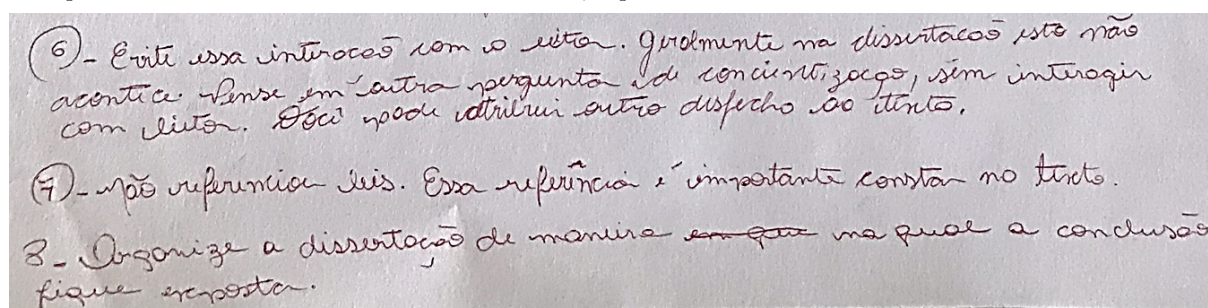 6 - Evite essa interaceõ com o leitor. Geralmente na dissertacaõ isto não
acontece. Pense em outra pergunta de concientizaçao, sem interagir
com leitor. Você pode atribuir outro desfecho ao texto.
7 - não referenciou leis. Essa referência é importante constar no texto.
8 - Organize a dissertação de maneira na qual a conclusão
fique exposta.